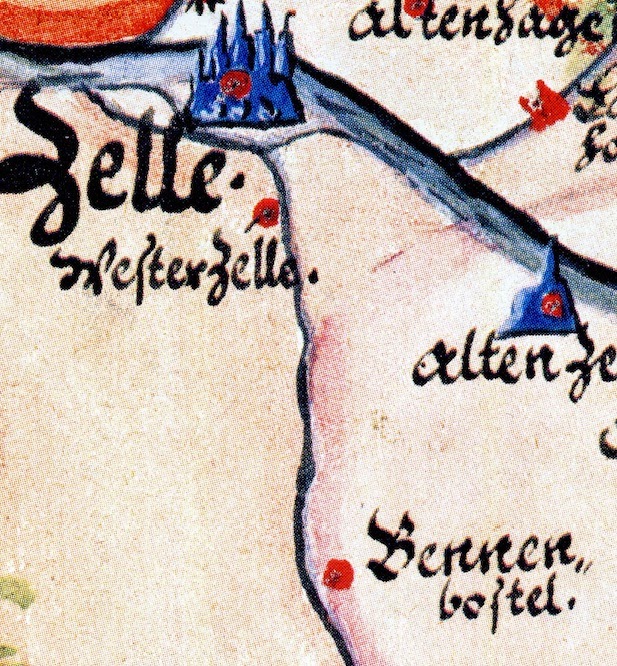 altenhage
Zelle.
Westerzelle.
alten Ze
Bennen„
bostel.